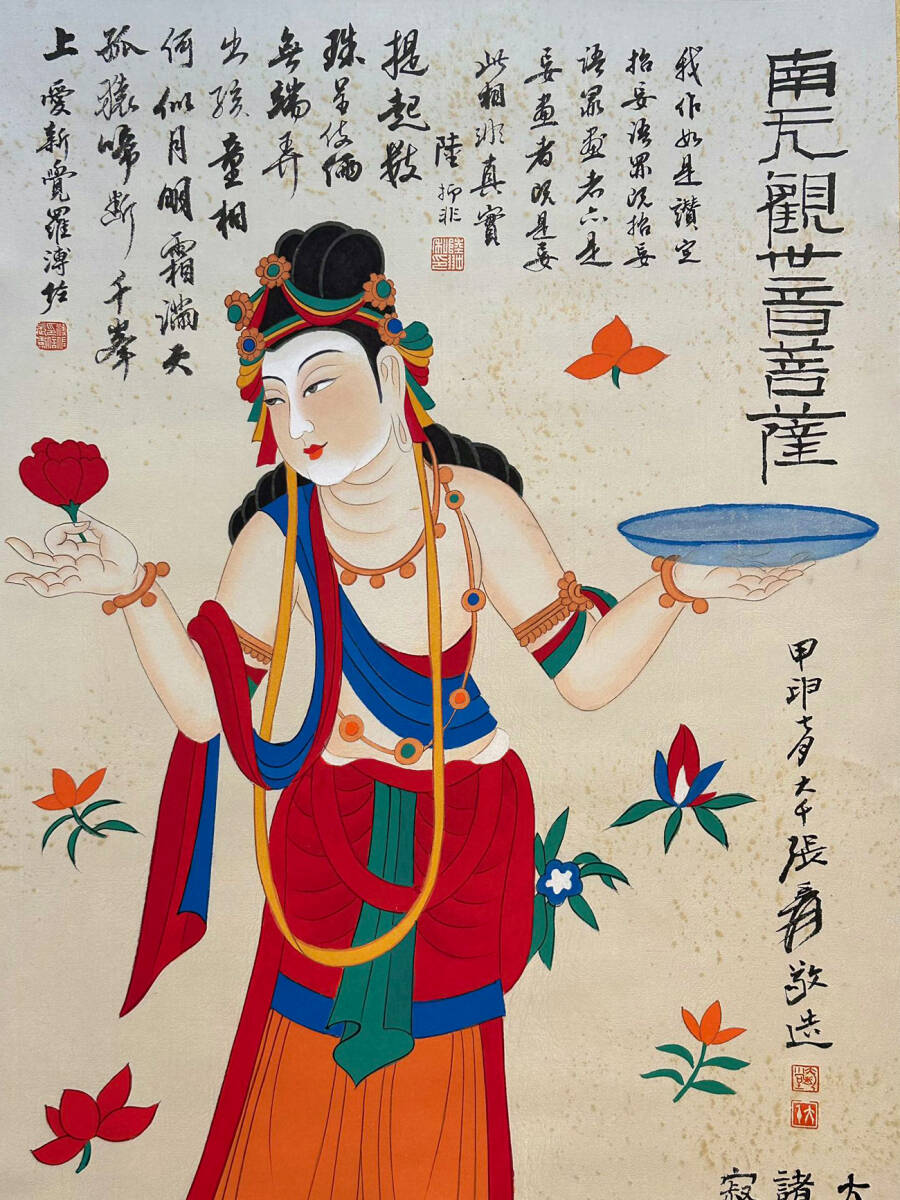 南无觀世音菩薩
我作如是讚定
招妄語眾既招妄
語眾畫者亦是
妄畫者既是妄
此相非真實
陸抑非
提起數
珠呈伎倆
無端弄
出孩童相
何似月明霜滿天
孤猿啼斷千峯
上 愛新覺羅溥佺
甲申七月大千張爰敬造
諸
寂